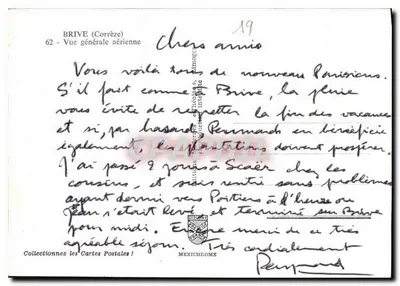 BRIVE (Corrèze)
62 - Vue générale aérienne
19
Chers amis
Vous voilà tous de nouveau Parisiens.
S'il fait comme à Brive, la pluie
vous évite de regretter la fin des vacances
et si, par hasard, en bénéficie
également, les plantations doivent prospérer.
J'ai passé 2 jours à Scaër chez les
cousins, et suis rentré sans problèmes
ayant dormi vers Poitiers à l'heure où
Jean s'était levé et terminé sur Brive
pour midi. Encore merci de ce très
agréable séjour. Très cordialement
Collectionnez les Cartes Postales !
MEXICHROME